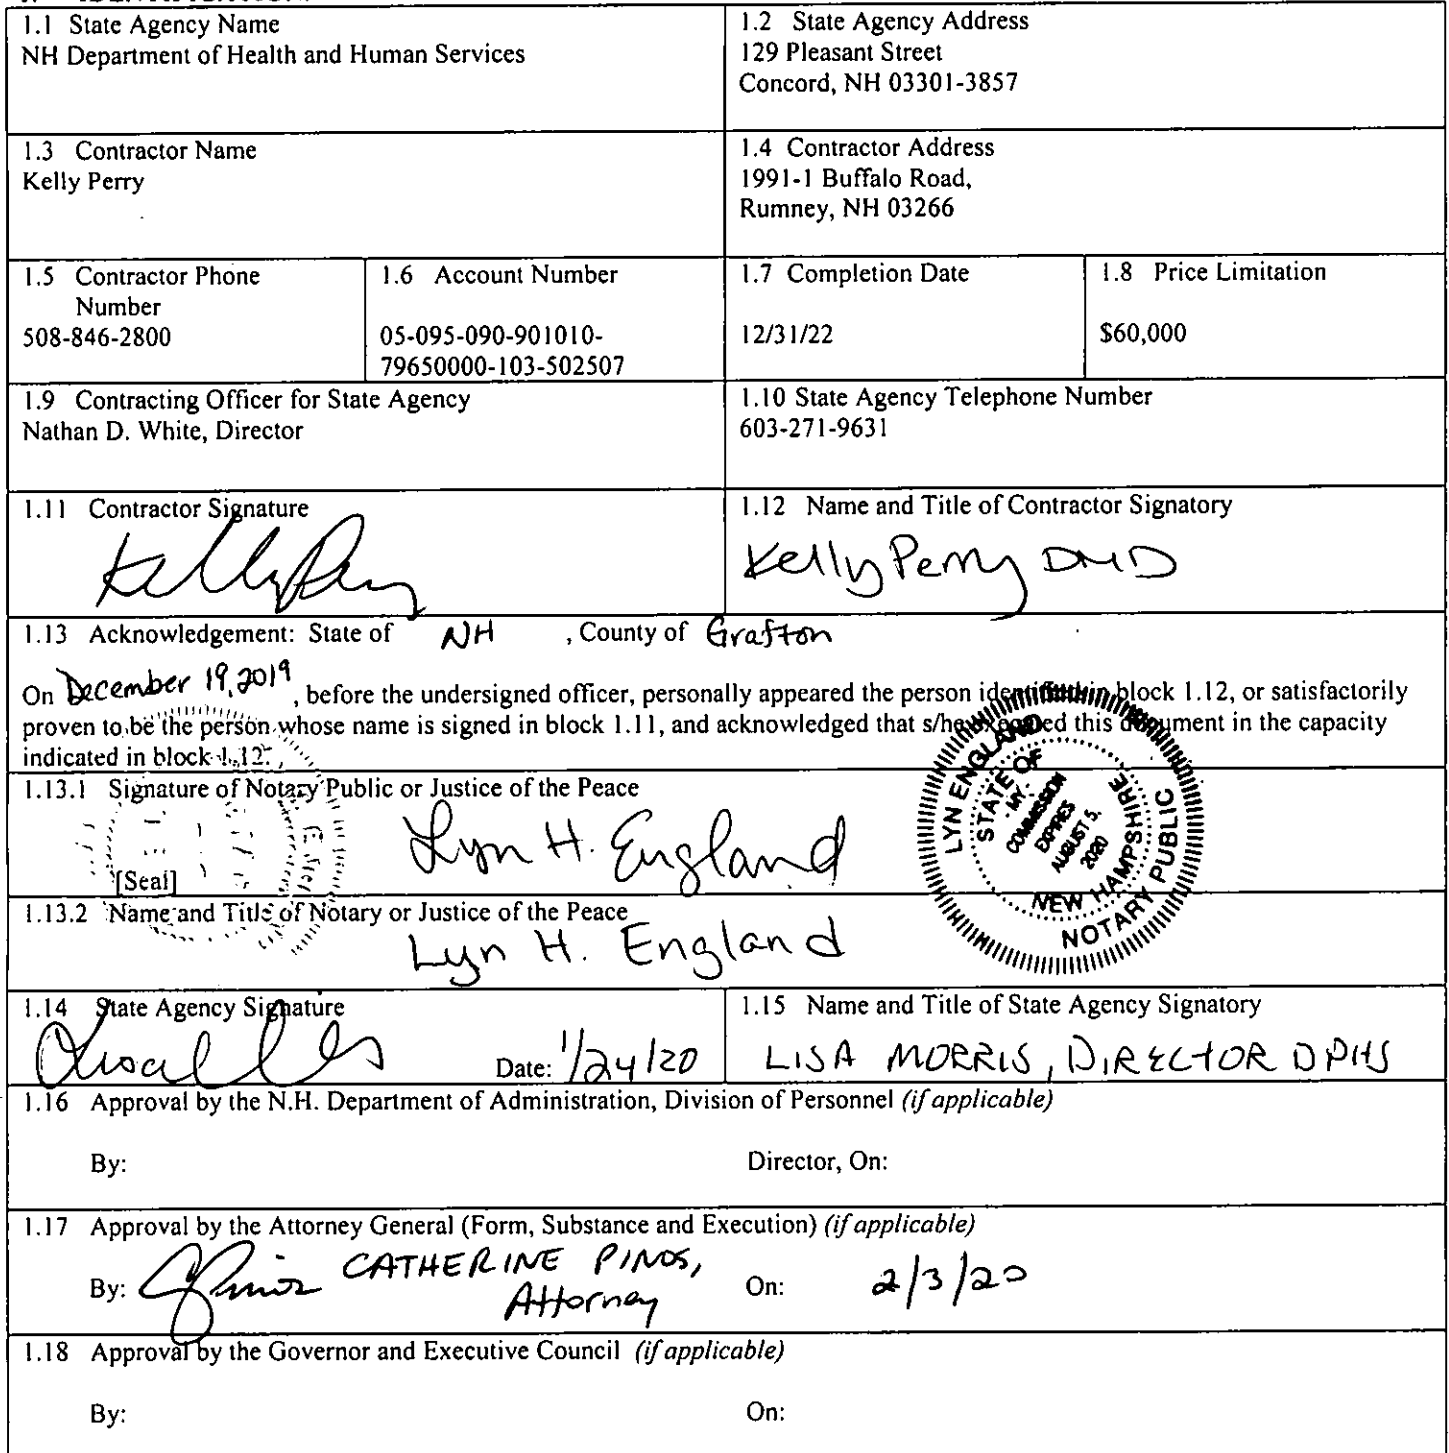 1.1 State Agency Name
NH Department of Health and Human Services
1.2 State Agency Address
129 Pleasant Street
Concord, NH 03301-3857
1.3 Contractor Name
Kelly Perry
1.4 Contractor Address
1991-1 Buffalo Road,
Rumney, NH 03266
1.5 Contractor Phone
Number
508-846-2800
1.6 Account Number
05-095-090-901010-
79650000-103-502507
1.7 Completion Date
12/31/22
1.8 Price Limitation
$60,000
1.9 Contracting Officer for State Agency
Nathan D. White, Director
1.10 State Agency Telephone Number
603-271-9631
1.11 Contractor Signature
Kelly Perry
1.12 Name and Title of Contractor Signatory
Kelly Perry DMD
1.13 Acknowledgement: State of NH , County of Grafton
On December 19, 2019 , before the undersigned officer, personally appeared the person identified in block 1.12, or satisfactorily
proven to be the person whose name is signed in block 1.11, and acknowledged that s/he executed this document in the capacity
indicated in block 1.12.
1.13.1 Signature of Notary Public or Justice of the Peace
Lyn H. England
[Seal]
LYN ENGLAND
STATE OF
NEW HAMPSHIRE
MY
COMMISSION
EXPIRES
AUGUST 5,
2020
NOTARY PUBLIC
1.13.2 Name and Title of Notary or Justice of the Peace
Lyn H. England
1.14 State Agency Signature
Date: 1/24/20
1.15 Name and Title of State Agency Signatory
LISA MORRIS, DIRECTOR DPHS
1.16 Approval by the N.H. Department of Administration, Division of Personnel (if applicable)
By: Director, On:
1.17 Approval by the Attorney General (Form, Substance and Execution) (if applicable)
By: CATHERINE PINOS,
Attorney
On: 2/3/20
1.18 Approval by the Governor and Executive Council (if applicable)
By: On: